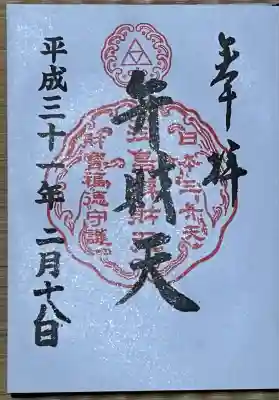 奉拝
弁財天
日本三弁天
江島弁財天
財宝福徳守護
平成三十一年二月十八日